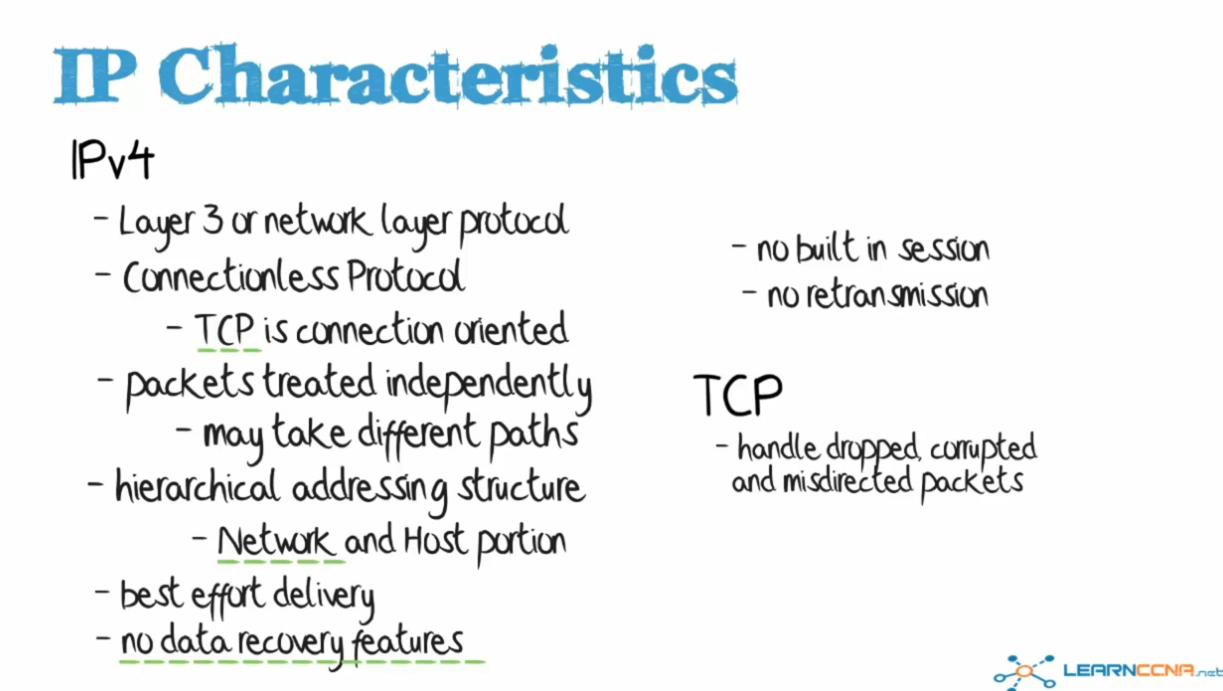 IP Characteristics
IPv4
- Layer 3 or network layer protocol
- Connectionless Protocol
- TCP is connection oriented
- packets treated independently
- may take different paths
- hierarchical addressing structure
- Network and Host portion
- best effort delivery
- no data recovery features
- no built in session
- no retransmission
TCP
- handle dropped, corrupted
and misdirected packets
LEARNCCNA.net